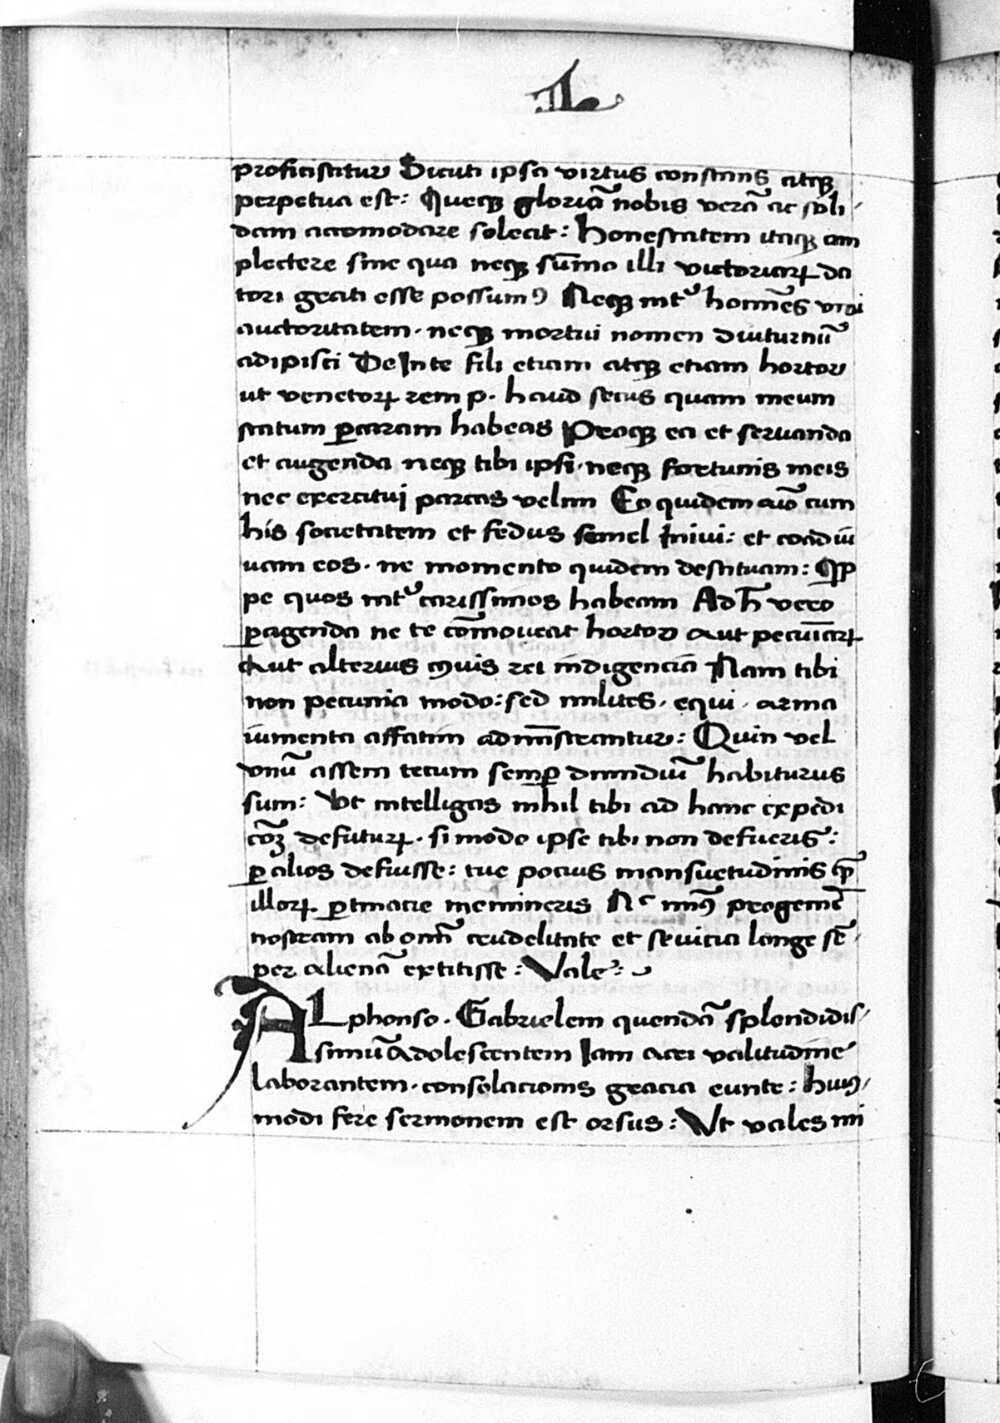 L
proficistitur Sicuti ipsa virtus constans atqꝫ
perpetua est: Queqꝫ gloriā nobis verā ac soli-
dam accomodare soleat: Honestatem itaqꝫ am
plectere sine qua neqꝫ sūmo illi victoriaꝝ da
tori grati esse possumꝰ Neqꝫ int͛ homīes viui
auctoritatem. neqꝫ mortui nomen diuturnū
adipisci De Inte fili etiam atqꝫ etiam hortor
ut venetoꝝ rem p. haud secus quam meum
statum ꝑcaram habeas Proqꝫ ea et seruanda
et augenda neqꝫ tibi ipsi. neqꝫ fortunis meis
nec exercitui parcas velim Eo quidem aīo cum
his societatem et fedus semel Iniui: et coadiu
uam eos. ne momento quidem destituam: Quip
pe quos int͛ carissimos habeam Ad h̄ vero
ꝑagenda ne te cōmoueat hortor Aut pecuniaꝝ
Aut alterius cuiuis rei indigencia Nam tibi
non pecunia modo: sed milites. equi. arma
iumenta affatim admīstrantur: Quin vel
vnū assem tecum semꝑ dimidiū habiturus
sum: Vt intelligas nihil tibi ad hanc expedi
cōꝫ defuturꝝ. si modo ipse tibi non defueris:
ꝑ alios defuisse: tue pocius mansuetudinis qꝫ
illoꝝ ꝑtinacie memineris Nᶜ nimꝰ progeniē
nostram ab omī crudelitate et seuicia longe sē-
per alienā extitisse: Vale:
ALphonso. Gabrielem quendā splendidis-
simū Adolescentem Iam acri valitudine
laborantem. consolacionis gracia eunte: huiꝰ-
modi fere sermonem est orsus: Vt vales mi